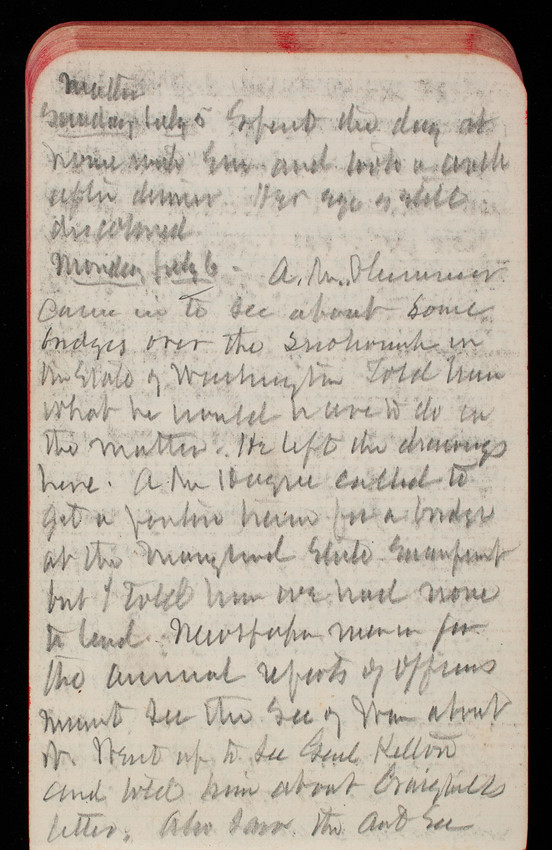 matter
Sunday July 5 Spent the day at
home with Em and took a walk
after dinner. Her eye is still
discolored
Monday July 6 - A. M.
came in to see about some
bridges over the Snohomish in
the State of Washington Told him
what he would have to do in
the matter. He left the drawings
here. A Mr called to
get a train for a bridge
at the Maryland State Encampment
but I told him we had none
to lend. Newspaper men in for
the annual reports of officers
must see the Sec of War about
it. Went up to see Genl Kelton
and told him about Craighills
letter. Also saw the Asst Sec